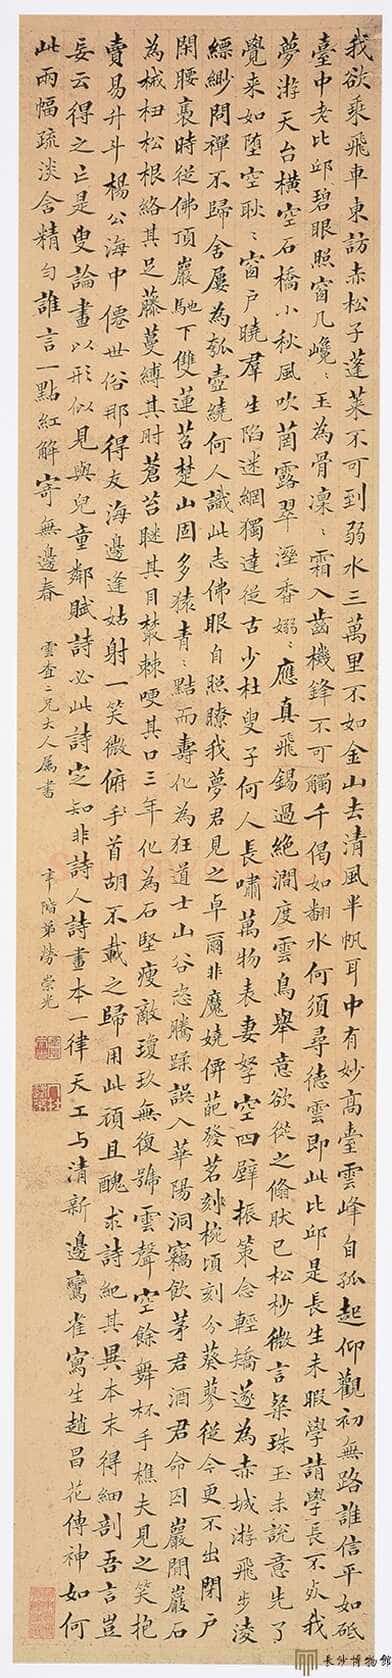 我欲乘飛車東訪赤松子蓬萊不可到弱水三萬里不如金山去清風半帆耳中有妙高臺雲峰自孤起仰觀初無路誰信平如砥
臺中老比邱碧眼照窗几巉〻玉為骨凜〻霜入齒機鋒不可觸千偈如翻水何須尋德雲即此比邱是長生未暇學請學長不死我
夢游天台橫空石橋小秋風吹菌露翠溼香嫋〻應真飛錫過絕澗度雲鳥舉意欲從之翛肰已松杪微言粲珠玉未說意先了
覺來如墮空耿〻窗戶曉羣生陷迷網獨達從古少杜叟子何人長嘯萬物表妻孥空四壁振策念輕矯遂為赤城游飛步凌
縹緲問禪不歸舍屢為瓠壺繞何人識此志佛眼自照瞭我夢君見之卓爾非魔嬈俾葩發茗刻椀頃刻分葵蓼從今更不出閉戶
閑腰褭時從佛頂巖馳下雙蓮苕楚山固多猿青〻黠而壽化為狂道士山谷恣騰蹂誤入華陽洞竊飲茅君酒君命囚巖間巖石
為械杻松根絡其足藤蔓縛其肘蒼苔眯其目叢棘哽其口三年化為石堅瘦敵瓊玖無復號雲聲空餘舞杯手樵夫見之笑抱
賣易升斗楊公海中僊世俗那得友海邊逢姑射一笑微俯手首胡不載之歸用此頑且醜求詩紀其異本末得細剖吾言豈
妄云得之亡是叟論畫以形似見與兒童鄰賦詩必此詩定知非詩人詩畫本一律天工与清新邊鸞雀寫生趙昌花傳神如何
此兩幅疏淡含精勻誰言一點紅解寄無邊春
雲查二兄大人属書
辛階弟勞崇光
長沙博物館